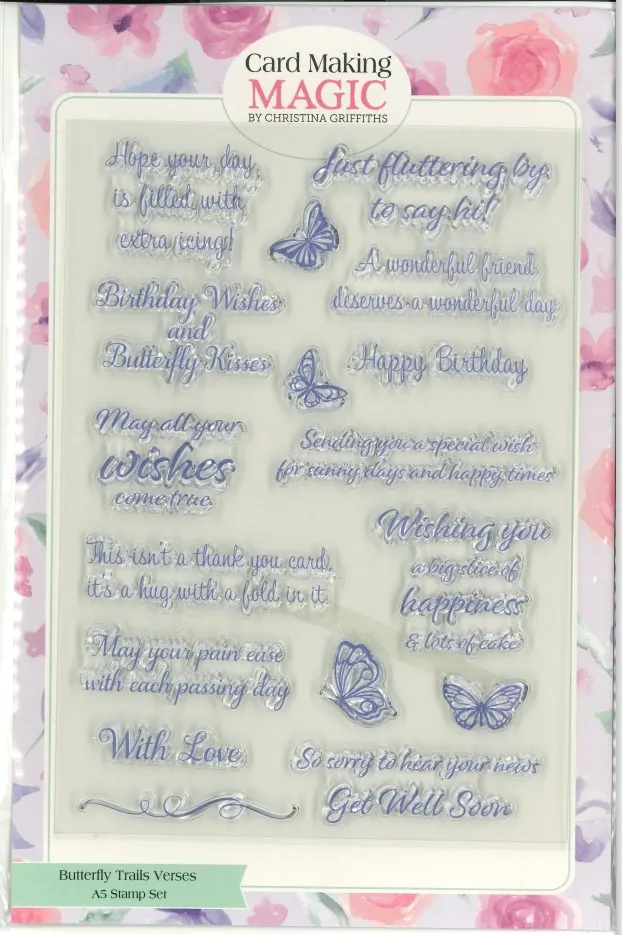 Card Making
MAGIC
BY CHRISTINA GRIFFITHS
Hope your day
is filled with
extra icing!
Just fluttering by
to say hi!
A wonderful friend
deserves a wonderful day
Birthday Wishes
and
Butterfly Kisses
Happy Birthday
May all your
wishes
come true
Sending you a special wish
for sunny days and happy times
Wishing you
a big slice of
happiness
& lots of cake
This isn't a thank you card,
it's a hug with a fold in it.
May your pain ease
with each passing day
With Love
So sorry to hear your news
Get Well Soon
Butterfly Trails Verses
A5 Stamp Set